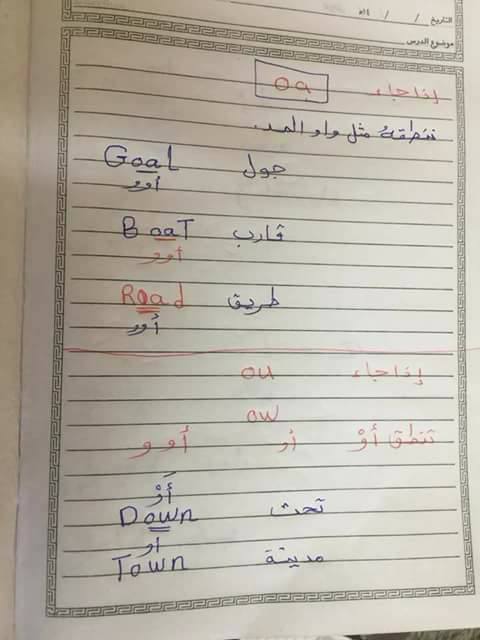 التاريخ / / ١٤هـ
موضوع الدرس
إذا جاء oa
ننطقه مثل واو المد.
Goal جول
أوو
BoaT قارب
أوو
Road طريق
أوو
إذا جاء ou
ow
تنطق أوْ أو أوو
أَوْ
Down تحت
او
Town مدينة